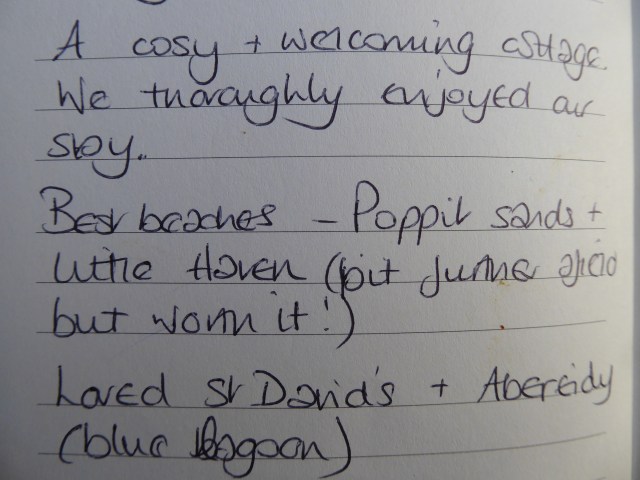 A cosy + welcoming cottage.
We thoroughly enjoyed our
stay..
Best beaches - Poppit sands +
Little Haven (bit further afield
but worth it!)
Loved St David's + Abereidy
(blue lagoon)